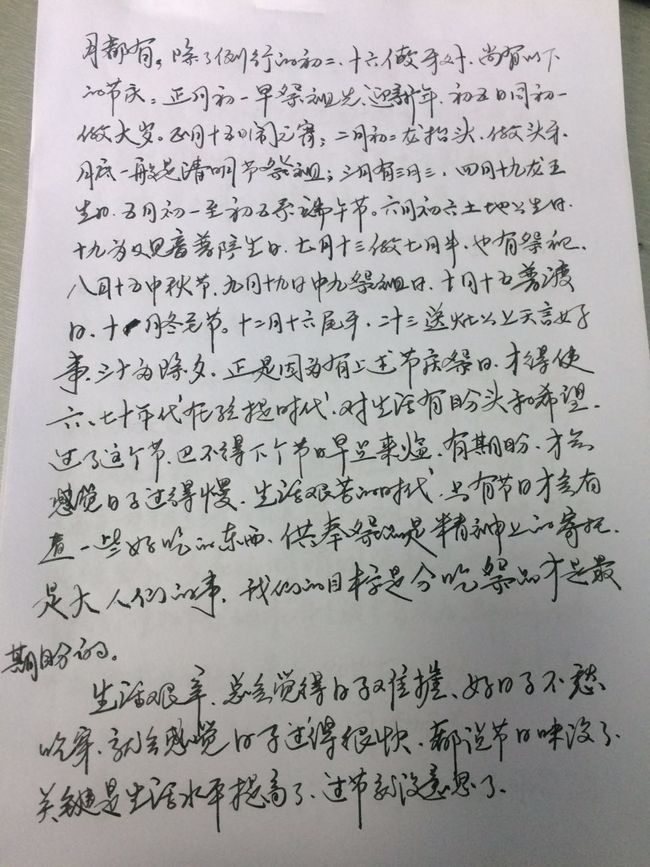 月都有。除了例行的初二、十六做牙外，尚有以下
的节庆：正月初一早祭祖先，迎新年，初五日同初一
做大岁。正月十五闹元宵；二月初二龙抬头，做头牙，
月底一般是清明节祭祖；三月有三月三，四月十九龙王
生日，五月初一至初五系端午节。六月初六土地公生日，
十九为观音菩萨生日，七月十三做七月半，也有祭祀，
八月十五中秋节，九月十九日中九祭祖日，十月十五普渡
日，十一月冬至节。十二月十六尾牙，二十三送灶公上天言好
事，三十为除夕。正是因为有上述节庆祭日，才得使
六、七十年代在经提时代，对生活有盼头和希望。
过了这个节，巴不得下个节日早点来临，有期盼，才会
感觉日子过得慢，生活艰苦的时代，只有节日才会有
一些好吃的东西，供奉祭品是精神上的寄托，
是大人们的事，我们的目标是分吃祭品才是最
期盼的。
生活艰辛，总会觉得日子难捱，好日子不愁
吃穿，就会感觉日子过得很快，都说节日味没了，
关键是生活水平提高了，过节就没意思了。